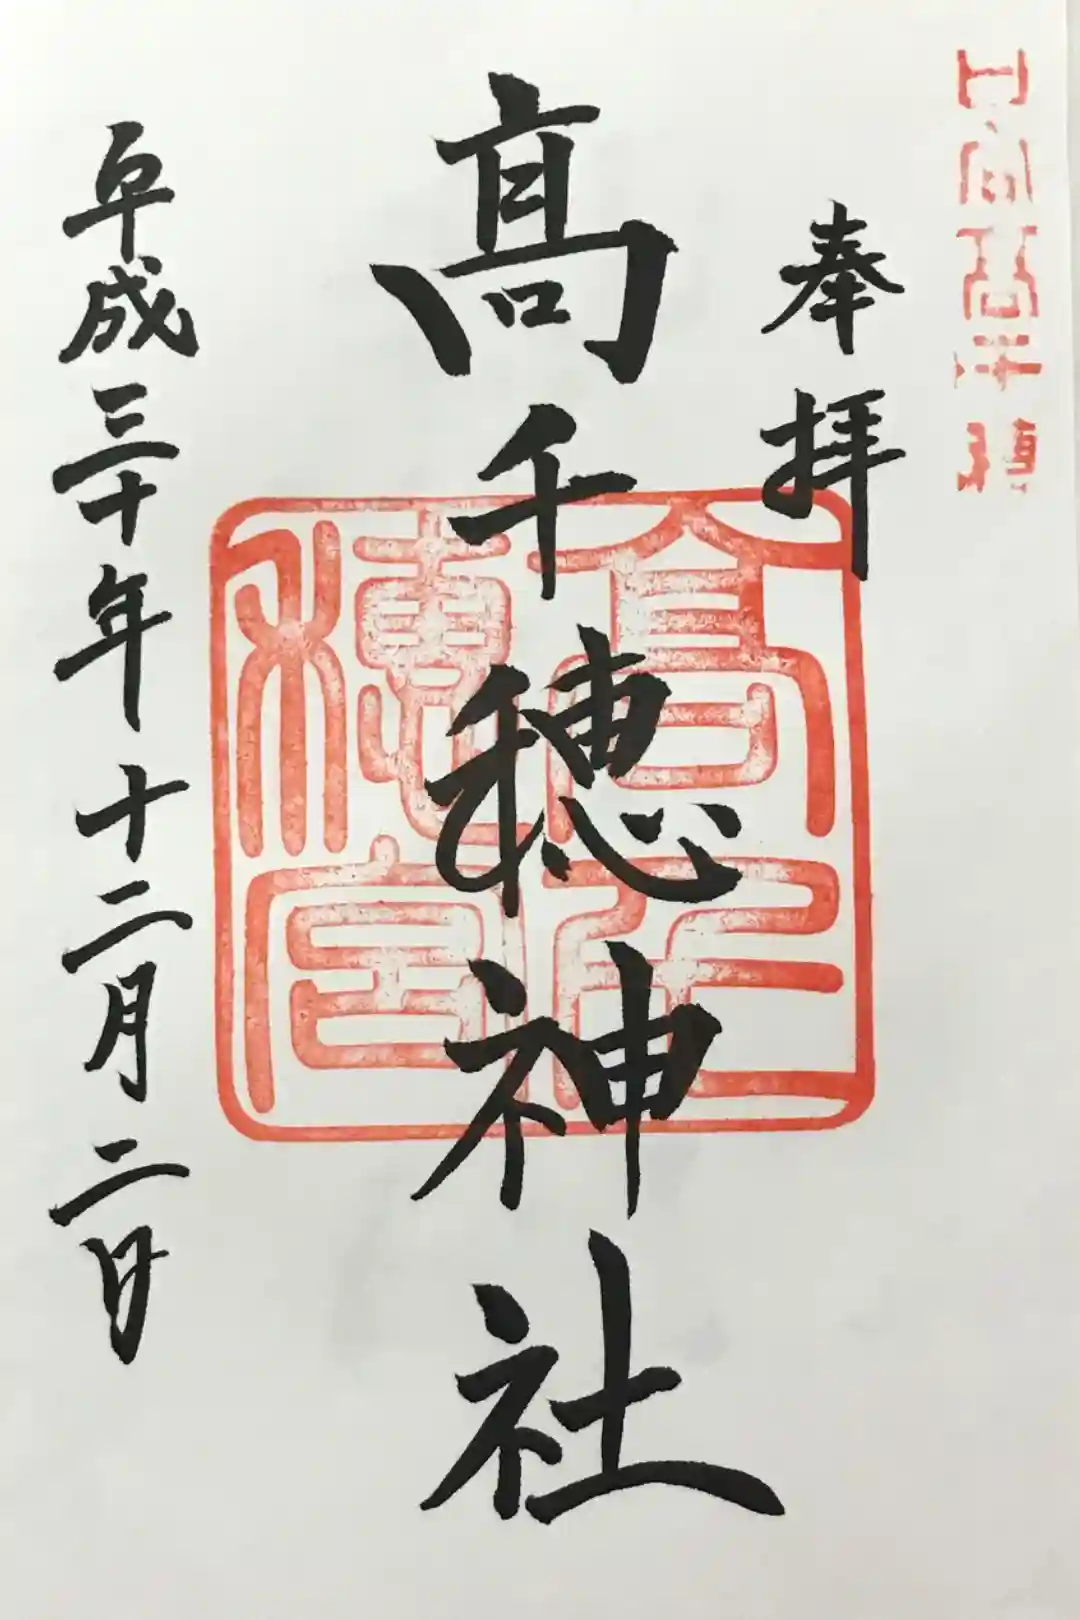 奉拝
髙千穂神社
高千穂宮
平成三十年十二月二日